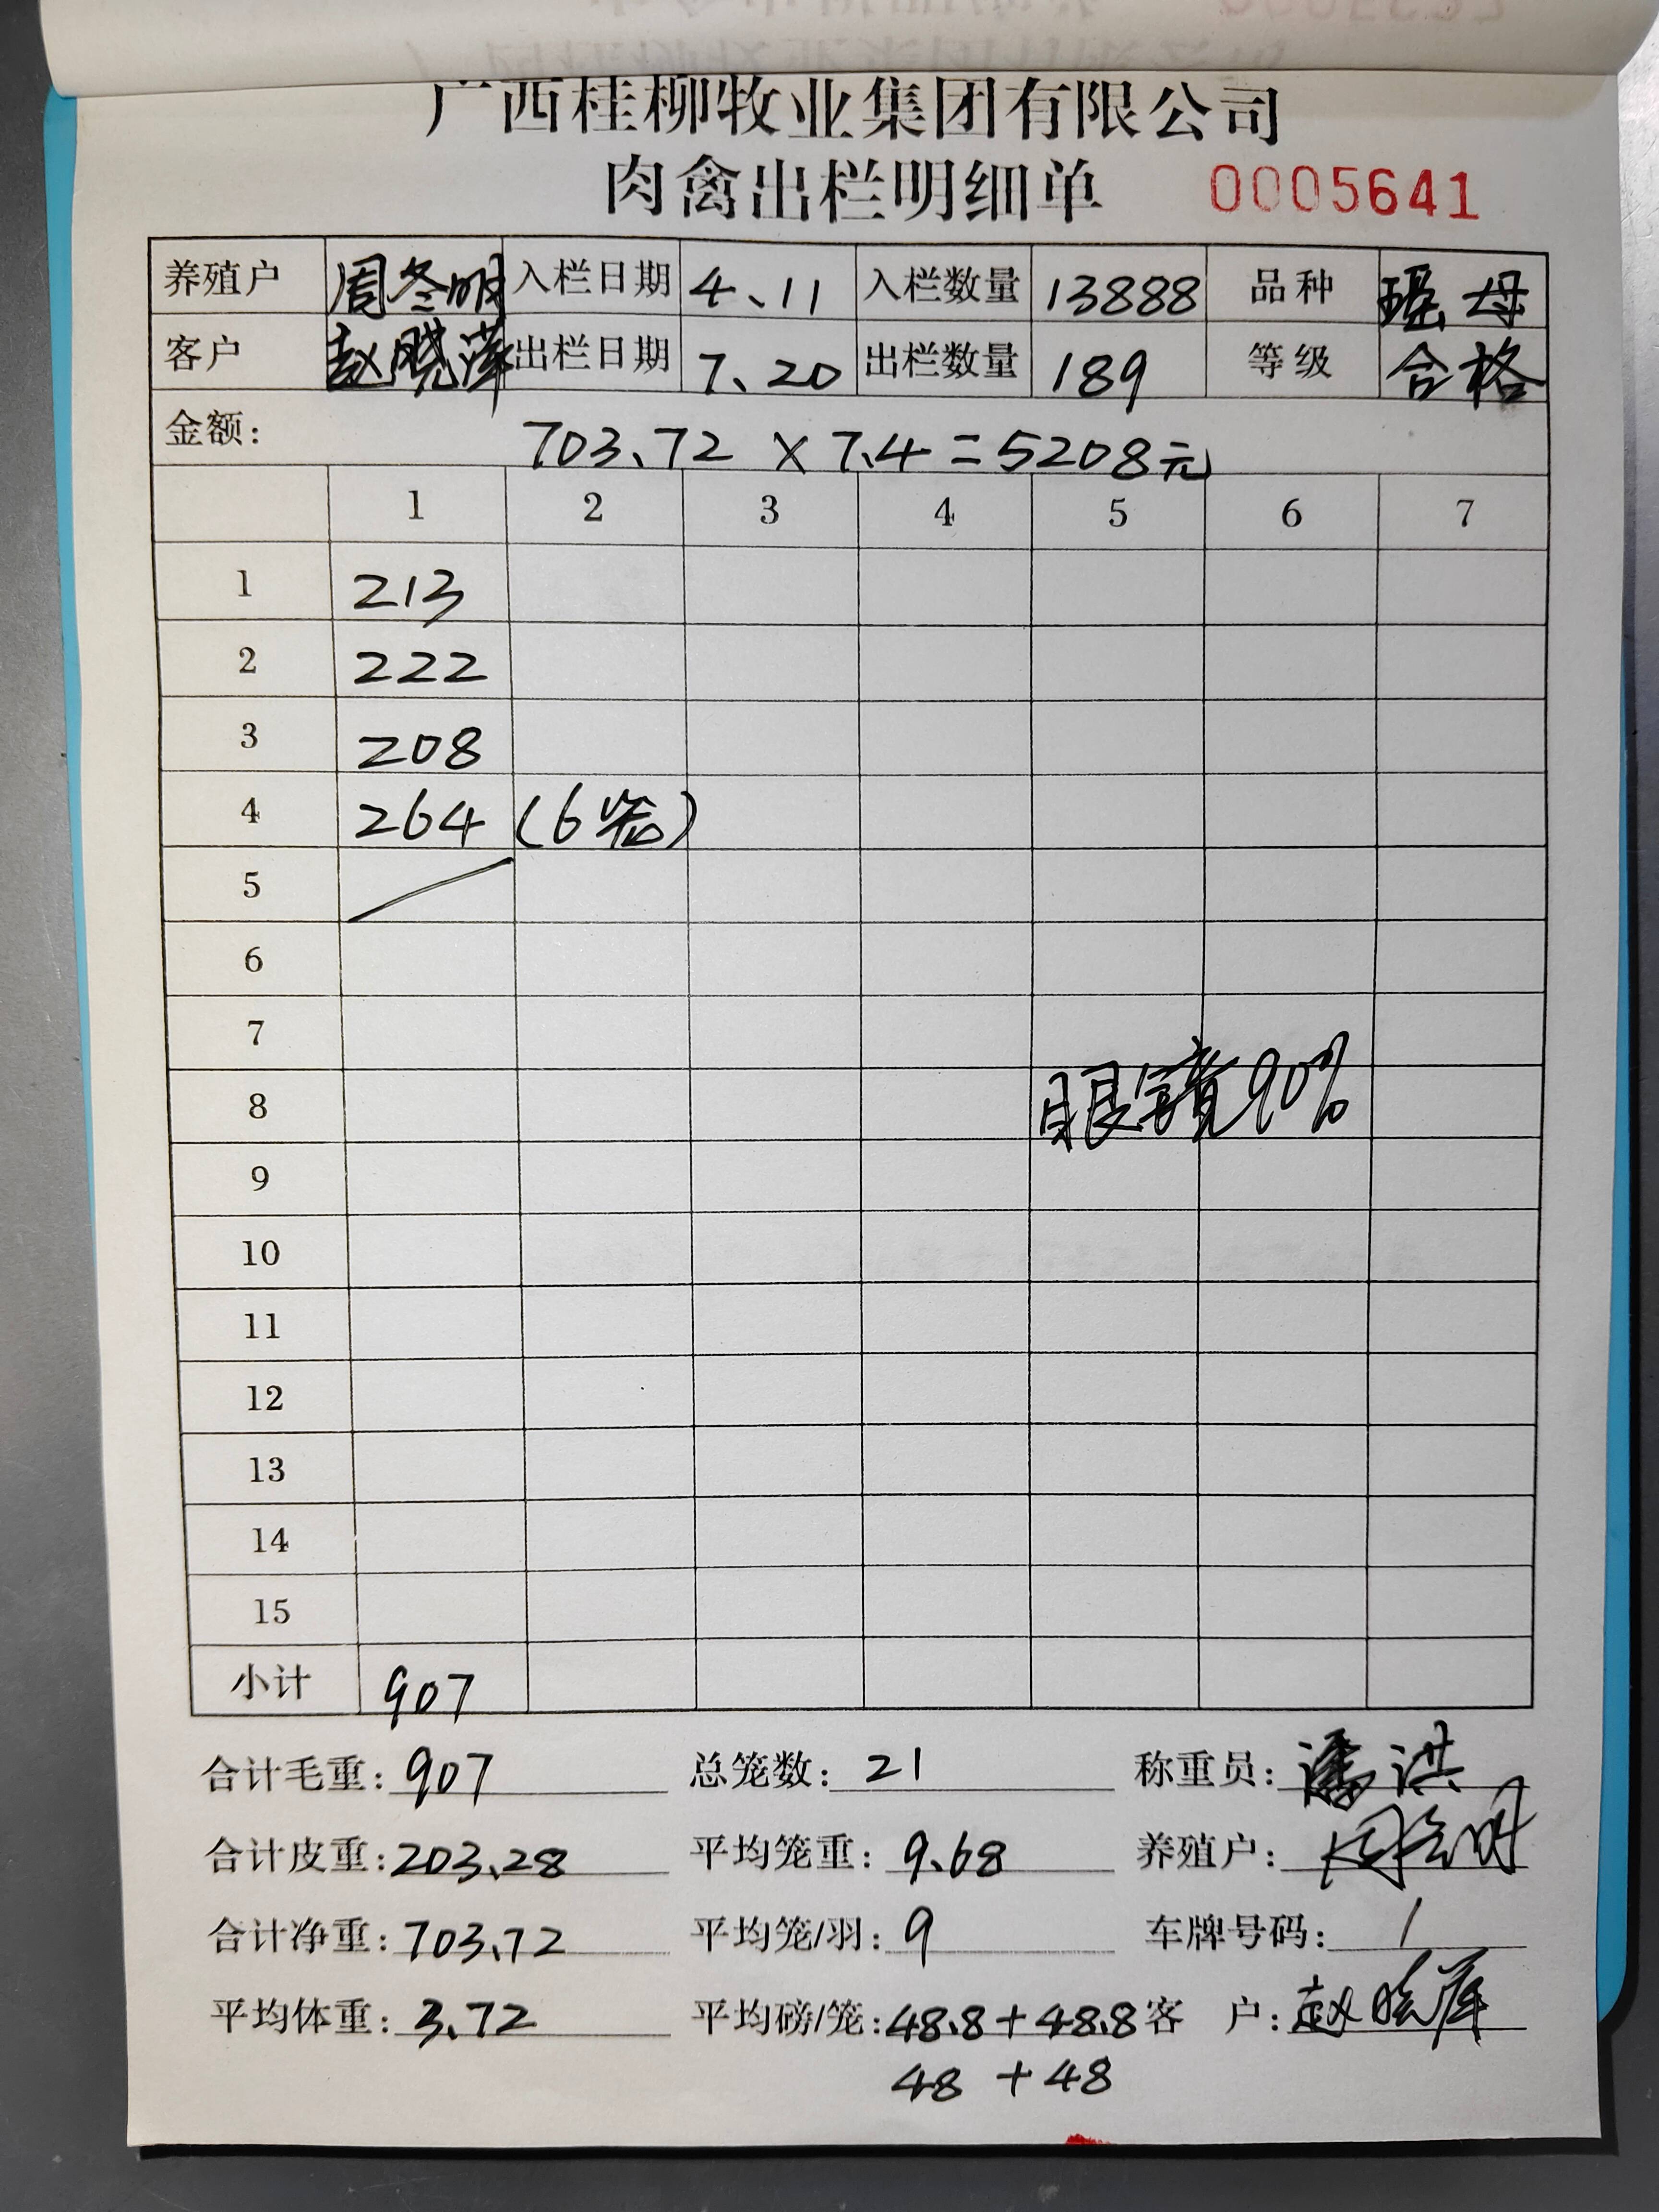 广西桂柳牧业集团有限公司
肉禽出栏明细单 0005641
养殖户 周冬明 入栏日期 4、11 入栏数量 13888 品种 瑶母
客户 赵晓萍 出栏日期 7、20 出栏数量 189 等级 合格
金额: 703、72 × 7.4 = 5208元
1 2 3 4 5 6 7
1 213
2 222
3 208
4 264 (6笼)
5
6
7
8 眼镜90%
9
10
11
12
13
14
15
小计 907
合计毛重: 907 总笼数: 21 称重员: 潘洪
合计皮重: 203、28 平均笼重: 9、68 养殖户: 周冬明
合计净重: 703、72 平均笼/羽: 9 车牌号码: /
平均体重: 3、72 平均磅/笼: 48.8+48.8 客 户: 赵晓萍
48 +48